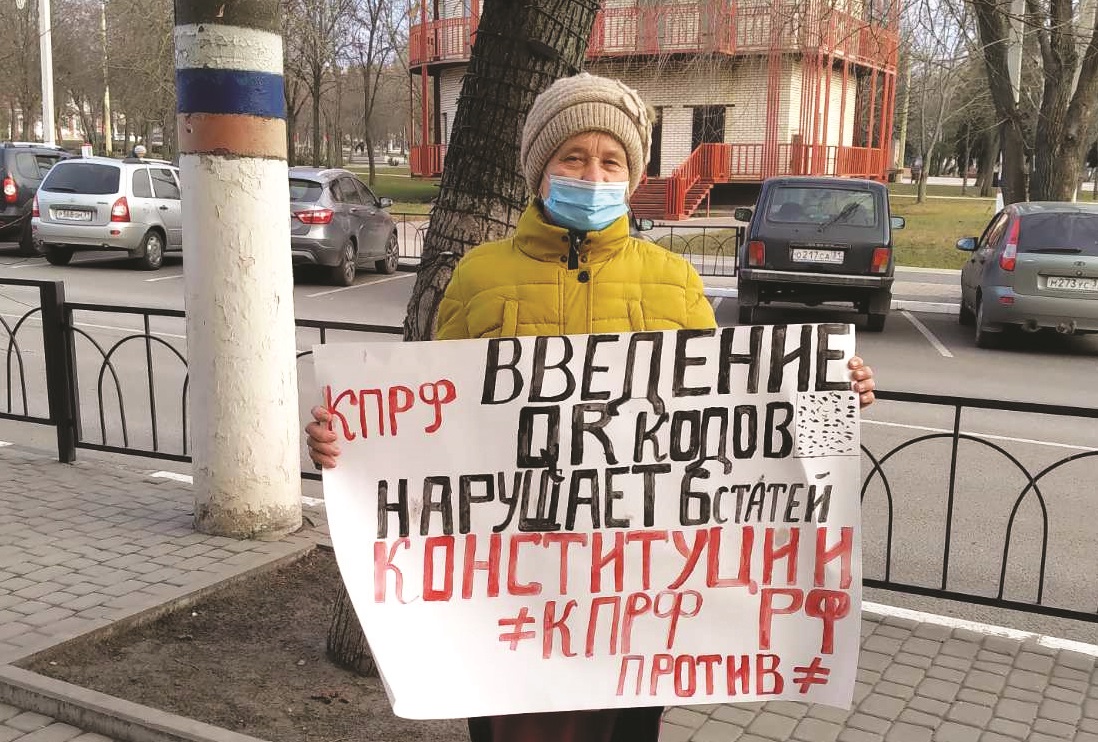 КПРФ ВВЕДЕНИЕ
QR КОДОВ
НАРУШАЕТ 6 СТАТЕЙ
КОНСТИТУЦИИ
≠КПРФ РФ
ПРОТИВ≠
О217СА 31
М273УС